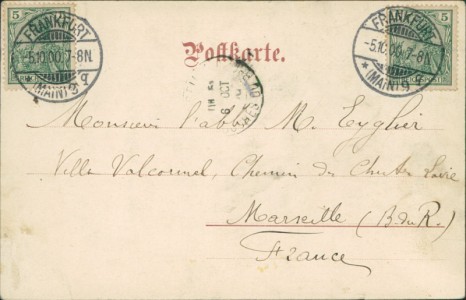 5 5
FRANKFURT FRANKFURT
-5.10.00.7-8N. -5.10.00.7-8N.
(MAIN) 9 (MAIN) 9
Postkarte.
OCT
Monsieur l'abbé M. Eyglier
Villa Valcormel, Chemin du
Marseille (B. du R.)
France